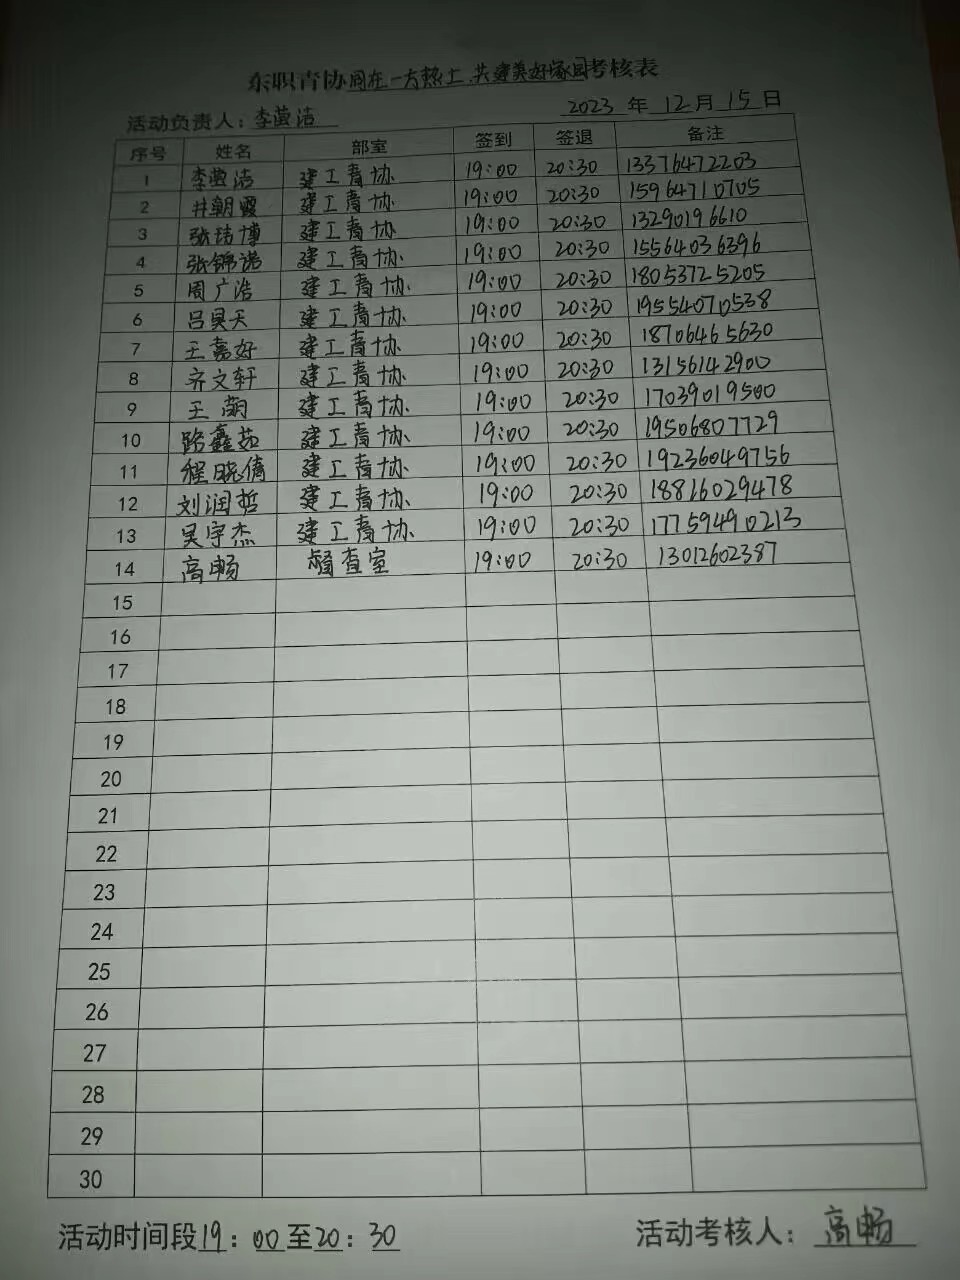 东职青协同在一方热土,共建美好家园考核表
活动负责人：李萤洁 2023 年 12 月 15 日
序号 姓名 部室 签到 签退 备注
1 李萤洁 建工青协 19:00 20:30 13376472203
2 井朝霞 建工青协 19:00 20:30 15964710705
3 张玮博 建工青协 19:00 20:30 13290196610
4 张锦诺 建工青协 19:00 20:30 15564036396
5 周广浩 建工青协 19:00 20:30 18053725205
6 吕昊天 建工青协 19:00 20:30 19554070538
7 王嘉好 建工青协 19:00 20:30 18706465630
8 齐文轩 建工青协 19:00 20:30 13156142900
9 王萌 建工青协 19:00 20:30 17039019500
10 路鑫茹 建工青协 19:00 20:30 19506807729
11 程晓倩 建工青协 19:00 20:30 19236049756
12 刘润哲 建工青协 19:00 20:30 18816029478
13 吴宇杰 建工青协 19:00 20:30 17759490213
14 高畅 督查室 19:00 20:30 13012602387
15
16
17
18
19
20
21
22
23
24
25
26
27
28
29
30
活动时间段19：00至20：30 活动考核人：高畅